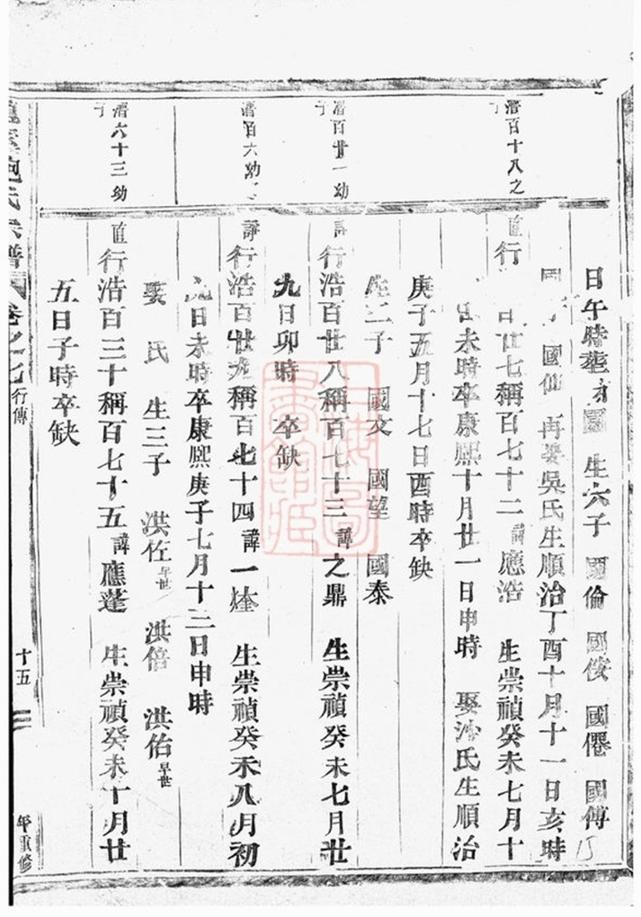 濳百十八之子
濳百廿一幼子
濳百六幼子
濳六十三幼子
日午時塟 生六子 國倫 國俊 國僊 國傳
國仙 再娶吳氏生順治丁酉十月十一日亥時
直行 廿七稱百七十二諱應浩 生崇禎癸未七月十
未時卒康熙十月廿一日申時 娶沈氏生順治
庚子五月十七日酉時卒缺
諍行浩百廿八稱百七十三諱之鼎 生崇禎癸未七月廿
九日卯時 卒缺
生三子 國文 國望 國泰
諍行浩百廿九稱百七十四諱一烇 生崇禎癸未八月初
九日未時卒康熙庚子七月十三日申時
娶氏 生三子 洪佐早世 洪倍 洪佑早世
直行浩百三十稱百七十五諱應蓬 生崇禎癸未十月廿
五日子時卒缺
氏宗譜 卷之七 行傳 十五 年重修